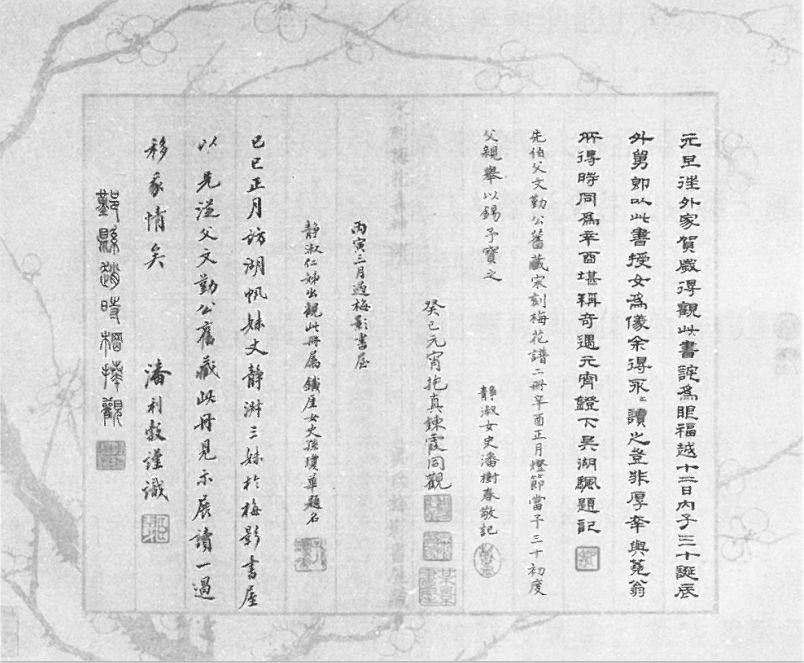 元旦往外家賀歲得觀此書詫為眼福越十三日內子三十誕辰
外舅即以此書授女為儀余得永永讀之豈非厚幸與蒐翁
所得時同為辛酉堪稱奇遇元宵鐙下吳湖颿題記
先伯父文勤公舊藏宋刻梅花譜二冊辛酉正月燈節當予三十初度
父親舉以錫予寶之
靜淑女史潘樹春敬記
癸巳元宵抱真鍊霞同觀
丙寅三月過梅影書屋
靜淑仁姊出觀此冊屬鐵厓女史孫瓊華題名
己巳正月訪湖帆妹丈靜淑三妹於梅影書屋
以先從父文勤公舊藏此冊見示展讀一過
移我情矣
潘利穀謹識
鄞縣趙時棡捧觀